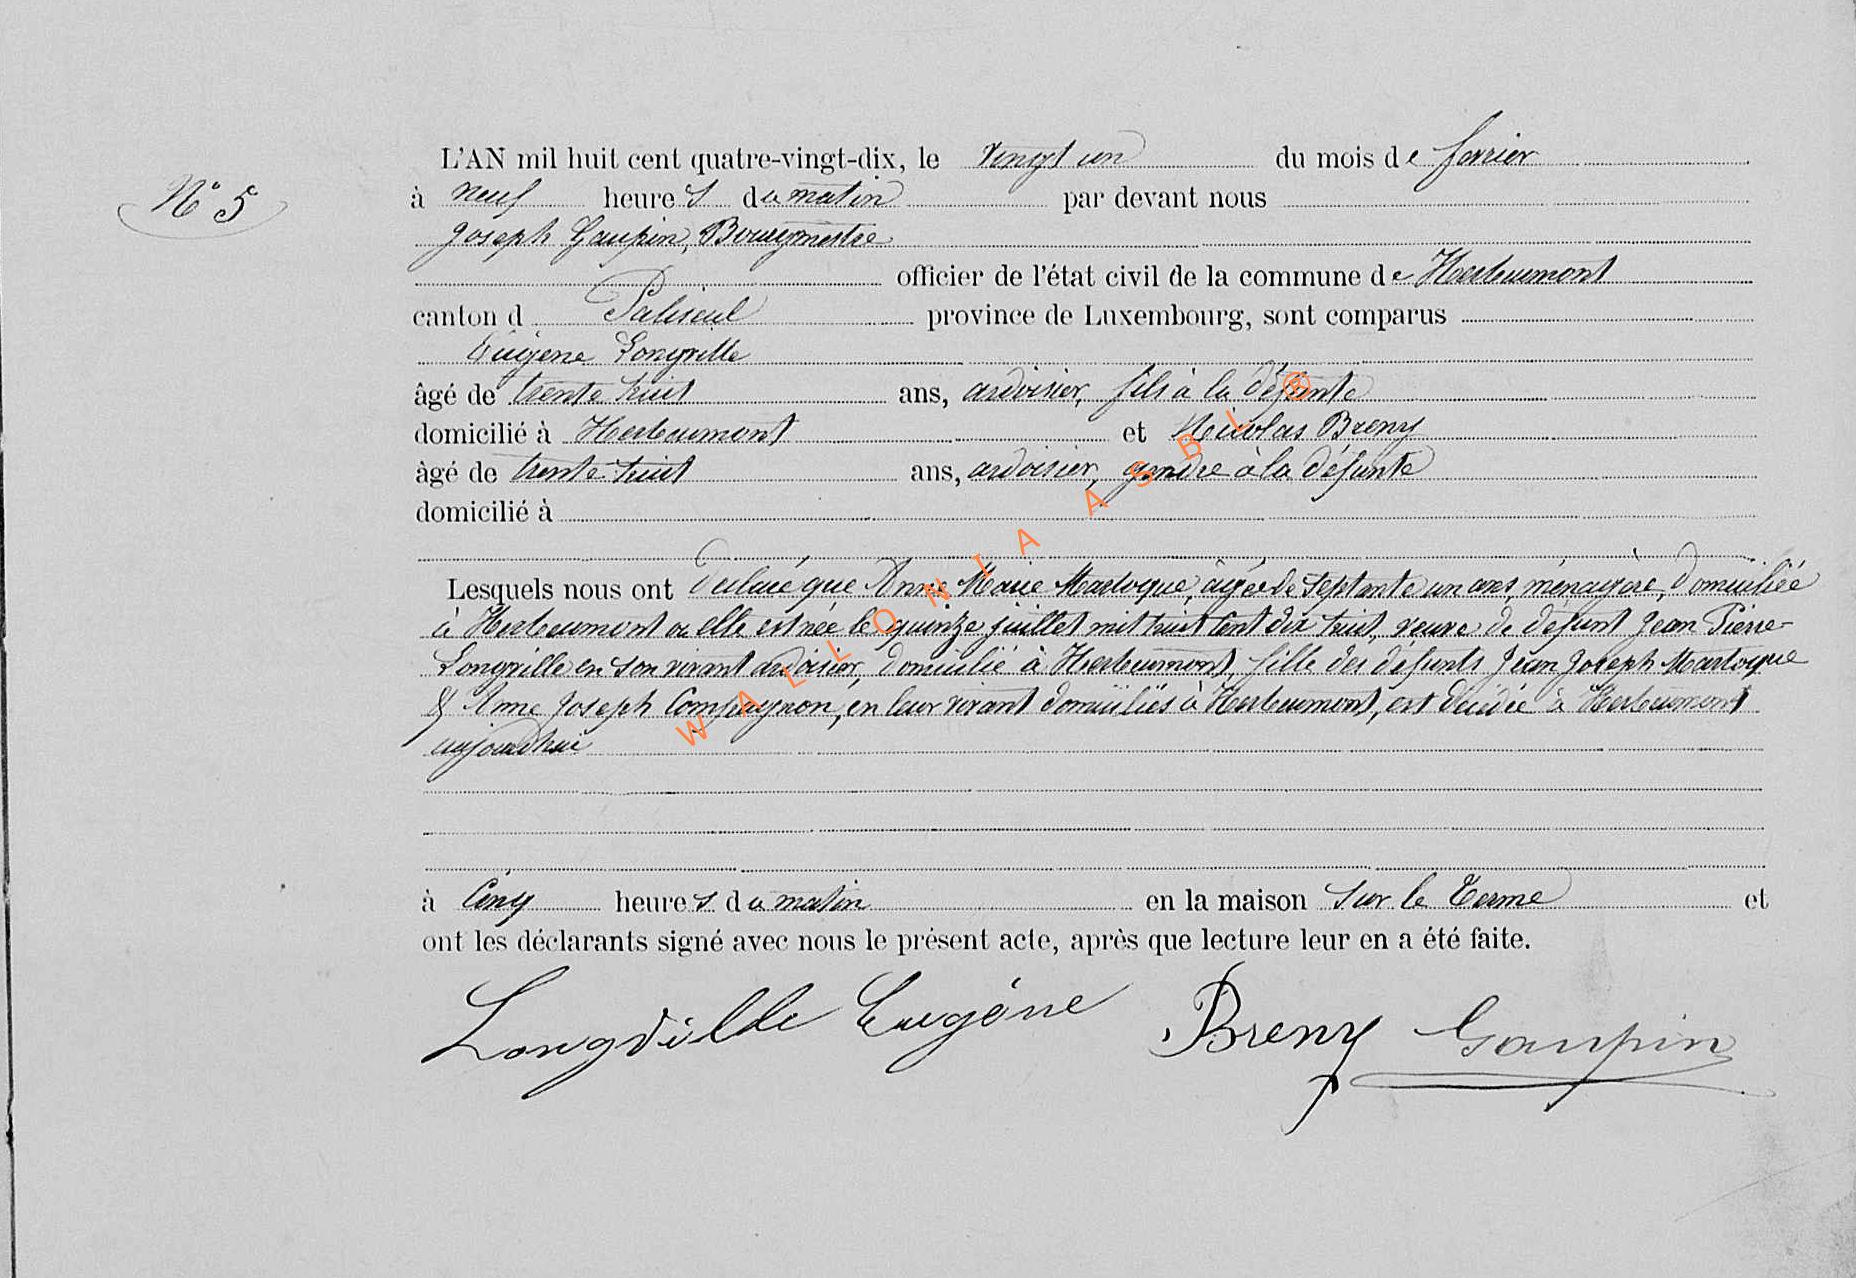 L'AN mil huit cent quatre-vingt-dix, le vingt un du mois de fevrier
N° 5
à neuf heures du matin par devant nous
Joseph Gaupin, Bourgmestre
officier de l'état civil de la commune de Herbeumont
canton d Paliseul province de Luxembourg, sont comparus
Eugène Longville
âgé de trente huit ans, ardoisier, fils à la défunte
domicilié à Herbeumont et Nicolas Breny
âgé de trente huit ans, ardoisier, gendre à la défunte
domicilié à
Lesquels nous ont déclaré que Anne Marie Martoque, âgée de septante un ans, ménagère, domiciliée
à Herbeumont ou elle est née le quinze juillet mil huit cent dix huit, veuve de défunt Jean Pierre
Longville en son vivant ardoisier, domicilié à Herbeumont, fille des défunts Jean Joseph Martoque
& Anne Joseph Compagnon, en leur vivant domiciliés à Herbeumont, est décédée à Herbeumont
aujourdhui
à cinq heures du matin en la maison sur le Terme et
ont les déclarants signé avec nous le présent acte, après que lecture leur en a été faite.
Longville Eugène Breny Gaupin
WALLONIA ASBL ®